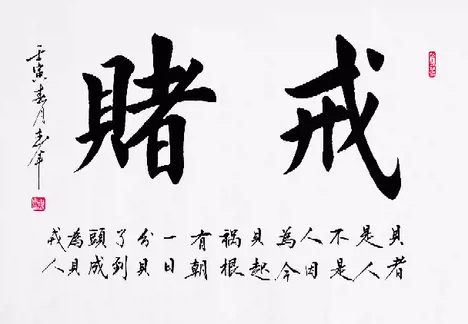 戒賭
貝者
是人
不是
人因
為今
貝起
祸根
有朝
一日
分貝
了到
頭成
為貝
戎人
壬寅春月